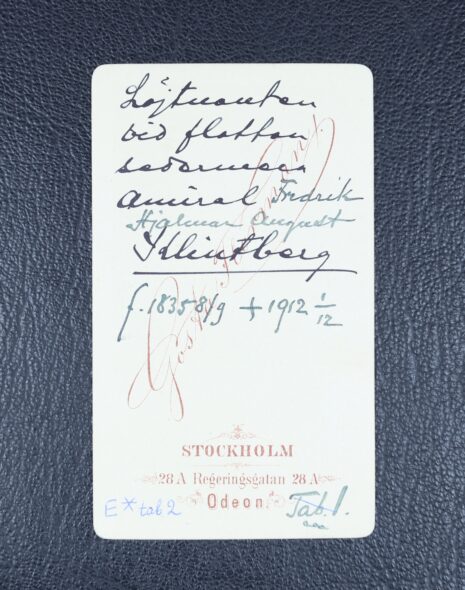 Löjtnanten
vid flottan
sedermera
amiral Fredrik
Hjalmar August
Klintberg
f. 1835 8/9 + 1912 1/12
Gösta Florman
STOCKHOLM
28 A Regeringsgatan 28 A
Odeon.
E* tab 2
Tab. 1.